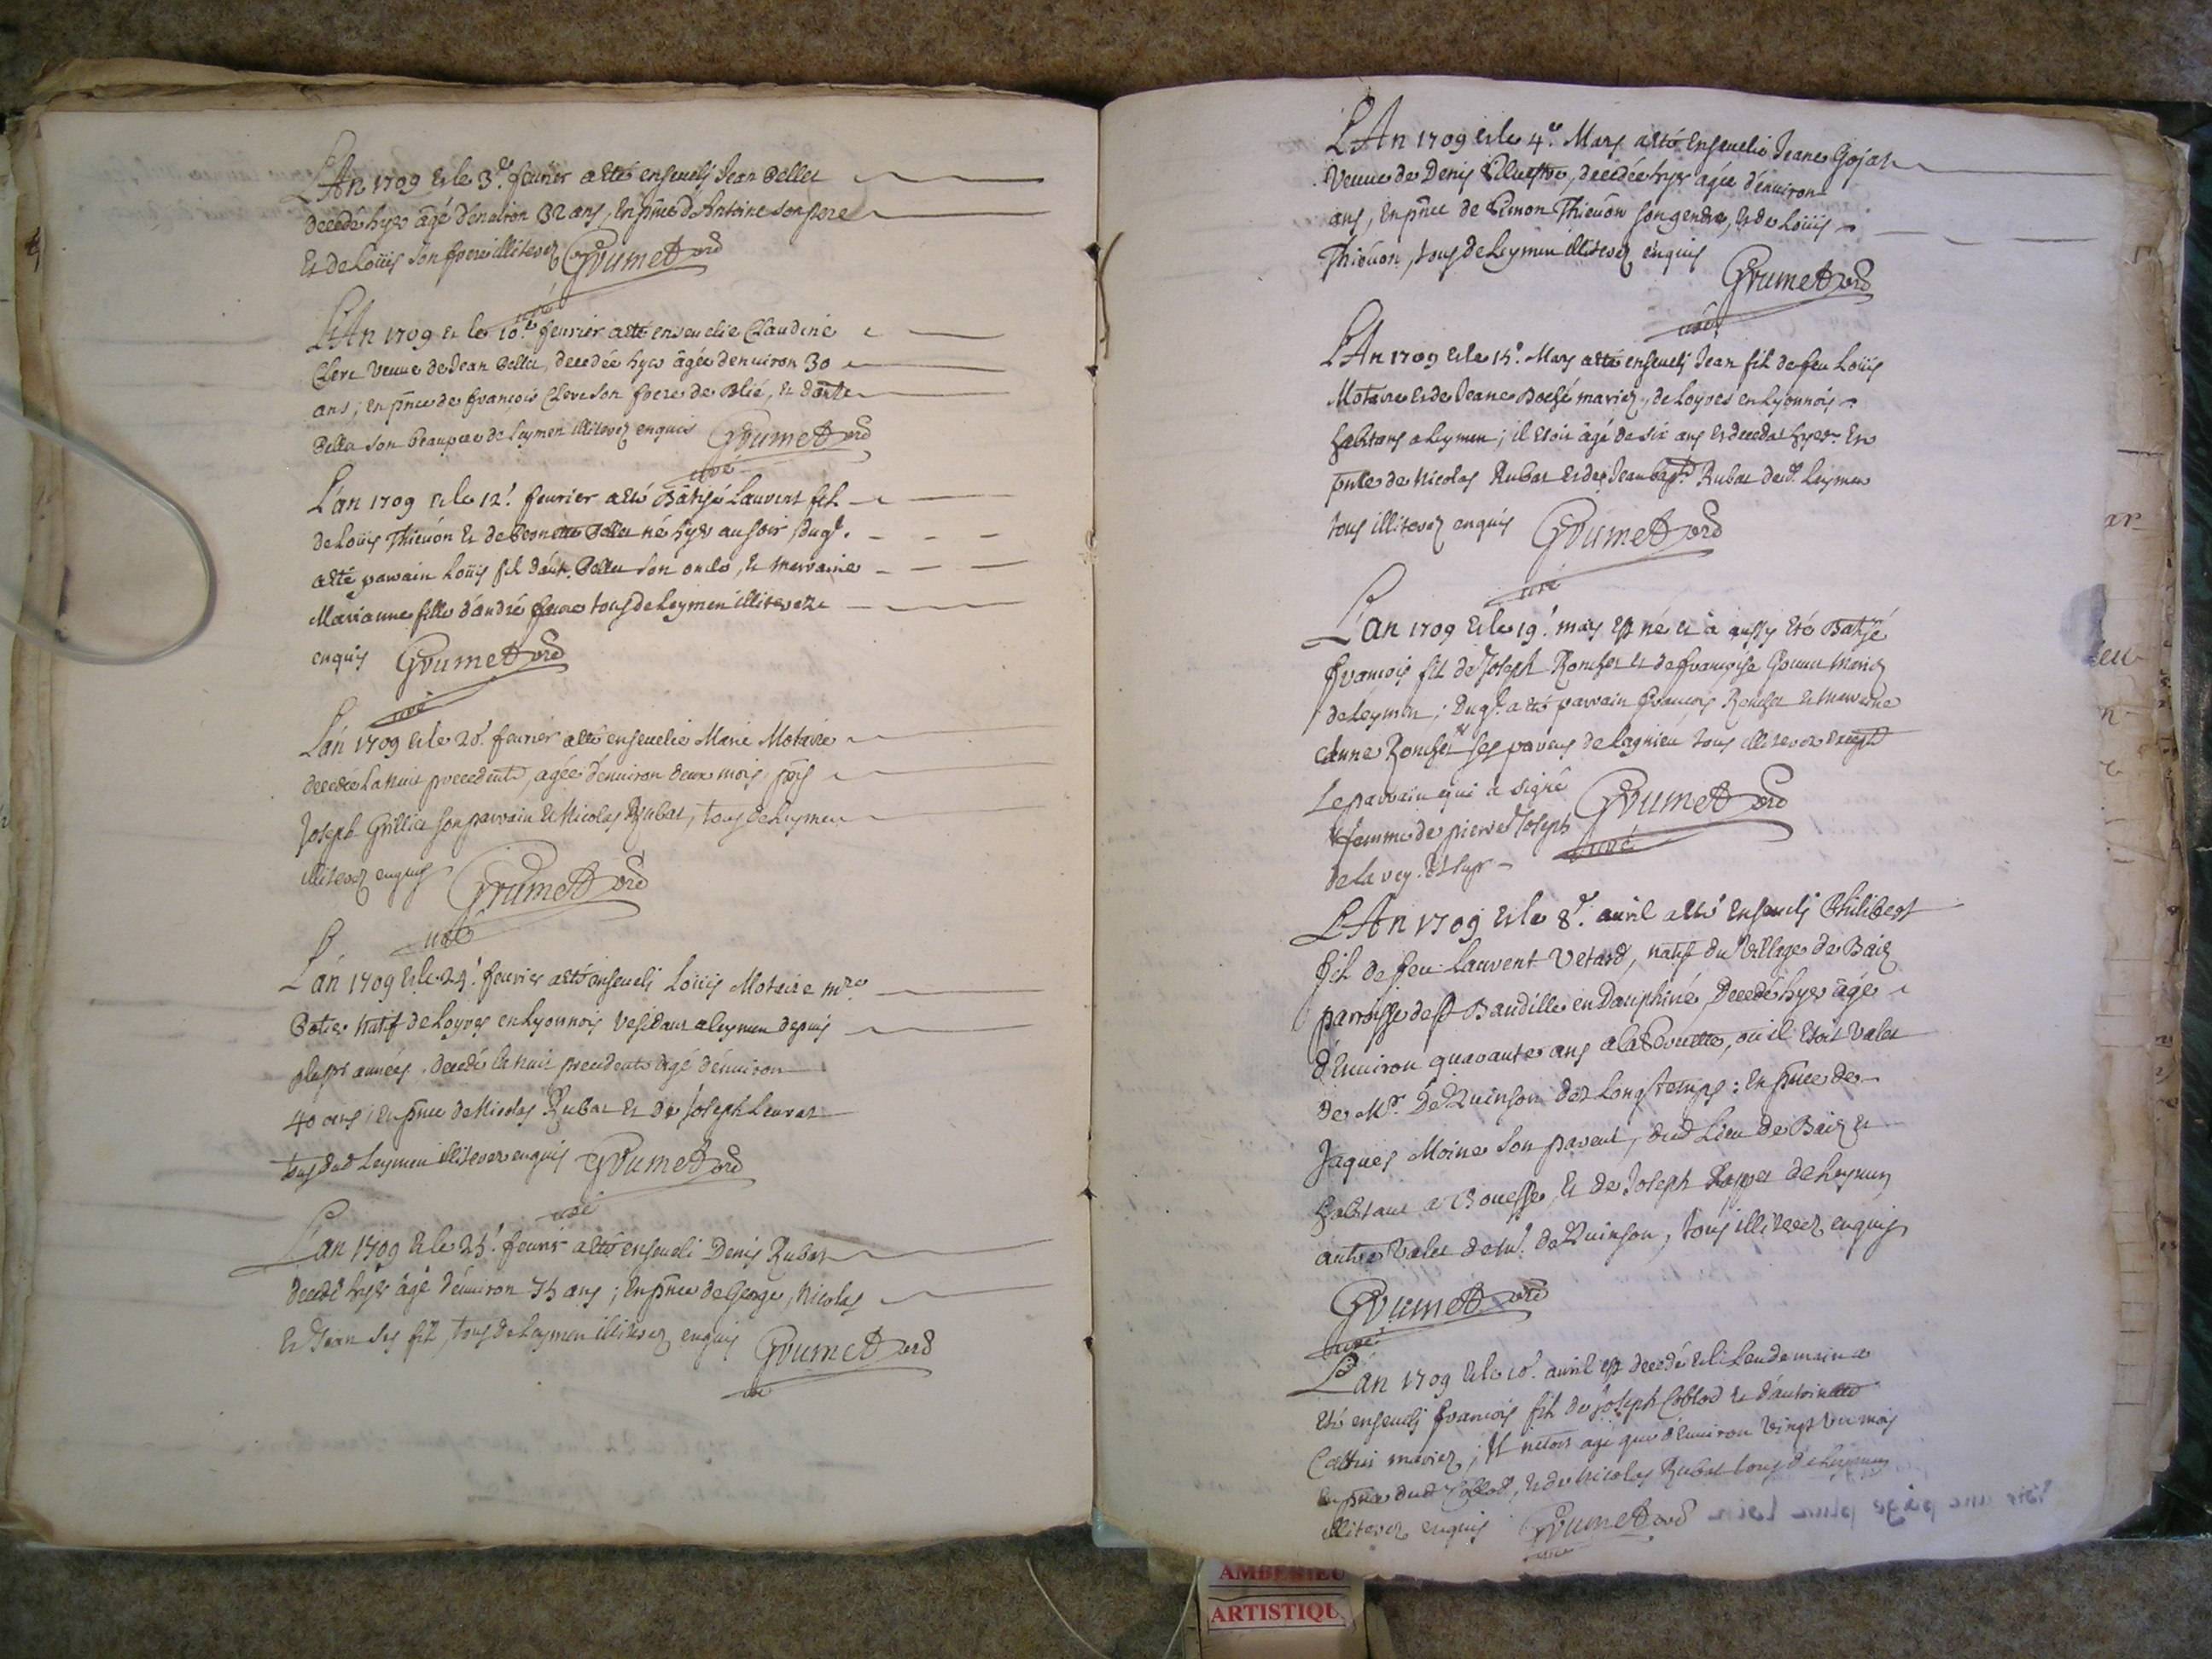 L'An 1709 et le 3e. feurier a esté enseuely Jean Bellet
decedé hyer âgé d'enuiron 32 ans, En pñce d'Antoine son pere
Et de Loüis son frere illiterez Grumet ord
curé
L'An 1709 et le 10e. feurier a esté enseuelie Claudine
Clerc Veuue de Jean Bellet, decedée hyer âgée d'enuiron 30
ans; en pñce de françois Clerc son frere de Blié, et d'ante
Bellet son beaupere de Leymen illiterez enquis Grumet ord
curé
L'an 1709 et le 12e. feurier a esté Batisé Laurent fils
de Loüis Thieuon et de Benoitte Bellet né hyer au soir, duql.
a esté parrain Loüis fils d'ant. Bellet son oncle, et marraine
Marianne fille d'andré feure tous de Leymen illiterez
enquis Grumet ord
curé
L'an 1709 et le 20e. feurier a esté enseuelie Marie Motaire
decedée la nuit precedente, agée d'enuiron deux mois, pñs
Joseph Grillier son parrain et Nicolas Rubat, tous de Leymen
illiterez enquis Grumet ord
curé
L'an 1709 et le 24e. feurier a esté enseuely Loüis Motaire mre
Potier natif de Loyres en Lyonnois residant a Leymen depuis
plusrs années, decedé la nuit precedente âgé d'enuiron
40 ans; En pñce de Nicolas Rubat et de Joseph Leurat
tous dud Leymen illiterez enquis Grumet ord
curé
L'an 1709 et le 25e. feurier a esté enseueli Denis Rubat
decedé hyer âgé d'enuiron 75 ans; En pñce de George, Nicolas
Et Jean ses fils, tous de Leymen illiterez enquis Grumet ord
curé
L'An 1709 et le 4e. Mars a esté Enseuelie Jeane Gojat
Veuue de Denis, decedée hyer agée d'enuiron
ans, En pñce de Simon Thieuon son gendre, Et de Loüis
Thieuon, tous de Leymen illiterez enquis
Grumet ord
curé
L'An 1709 et le 15e. Mars a esté enseuely Jean fils de feu Loüis
Motaire et de Jeane Boché mariez, de Loyres en Lyonnois
habitans a Leymen; il etoit âgé de six ans et deceda hyer En
pñce de Nicolas Rubat et de Jean bapt. Rubat de d. Leymen
tous illiterez enquis Grumet ord
curé
L'an 1709 Et le 19e. mars Est né et a aussy eté Batisé
françois fils de Joseph Ronchet et de françoise mariez
de Leymen; duql. a esté parrain françois Ronchet et marraine
Anne Ronchet ses parens de Lagnieu tous illiterez excepté
Le parrain qui a signé Grumet ord
femme de pierre Joseph
curé
L'An 1709 et le 8e. auril a esté Enseuely Philibert
fils de feu Laurent Vetard, natif du Village de Baiz
parroisse de St Baudille en Dauphiné, Decedé hyer âgé
d'Enuiron quarante ans a la, ou il Etoit Valet
de Mr. De Quinson dez Longtemps: En pñce de
Jaques Moine Son parent, dud Lieu de Baiz et
habitant a Bouesse, Et de Joseph de Leymen
autre Valet de Mr. De Quinson, tous illiterez enquis
Grumet ord
curé
L'an 1709 et le 10e. auril est decedé et le Lendemain a
Eté enseuely françois fils de Joseph et d'antoinette
mariez; Il n'etoit agé que d'Enuiron Vingt Un mois
En pñce dud, et de Nicolas Rubat tous de Leymen
illiterez enquis Grumet ord
curé
Voir une page plus Loin
AMBERIEU
ARTISTIQU